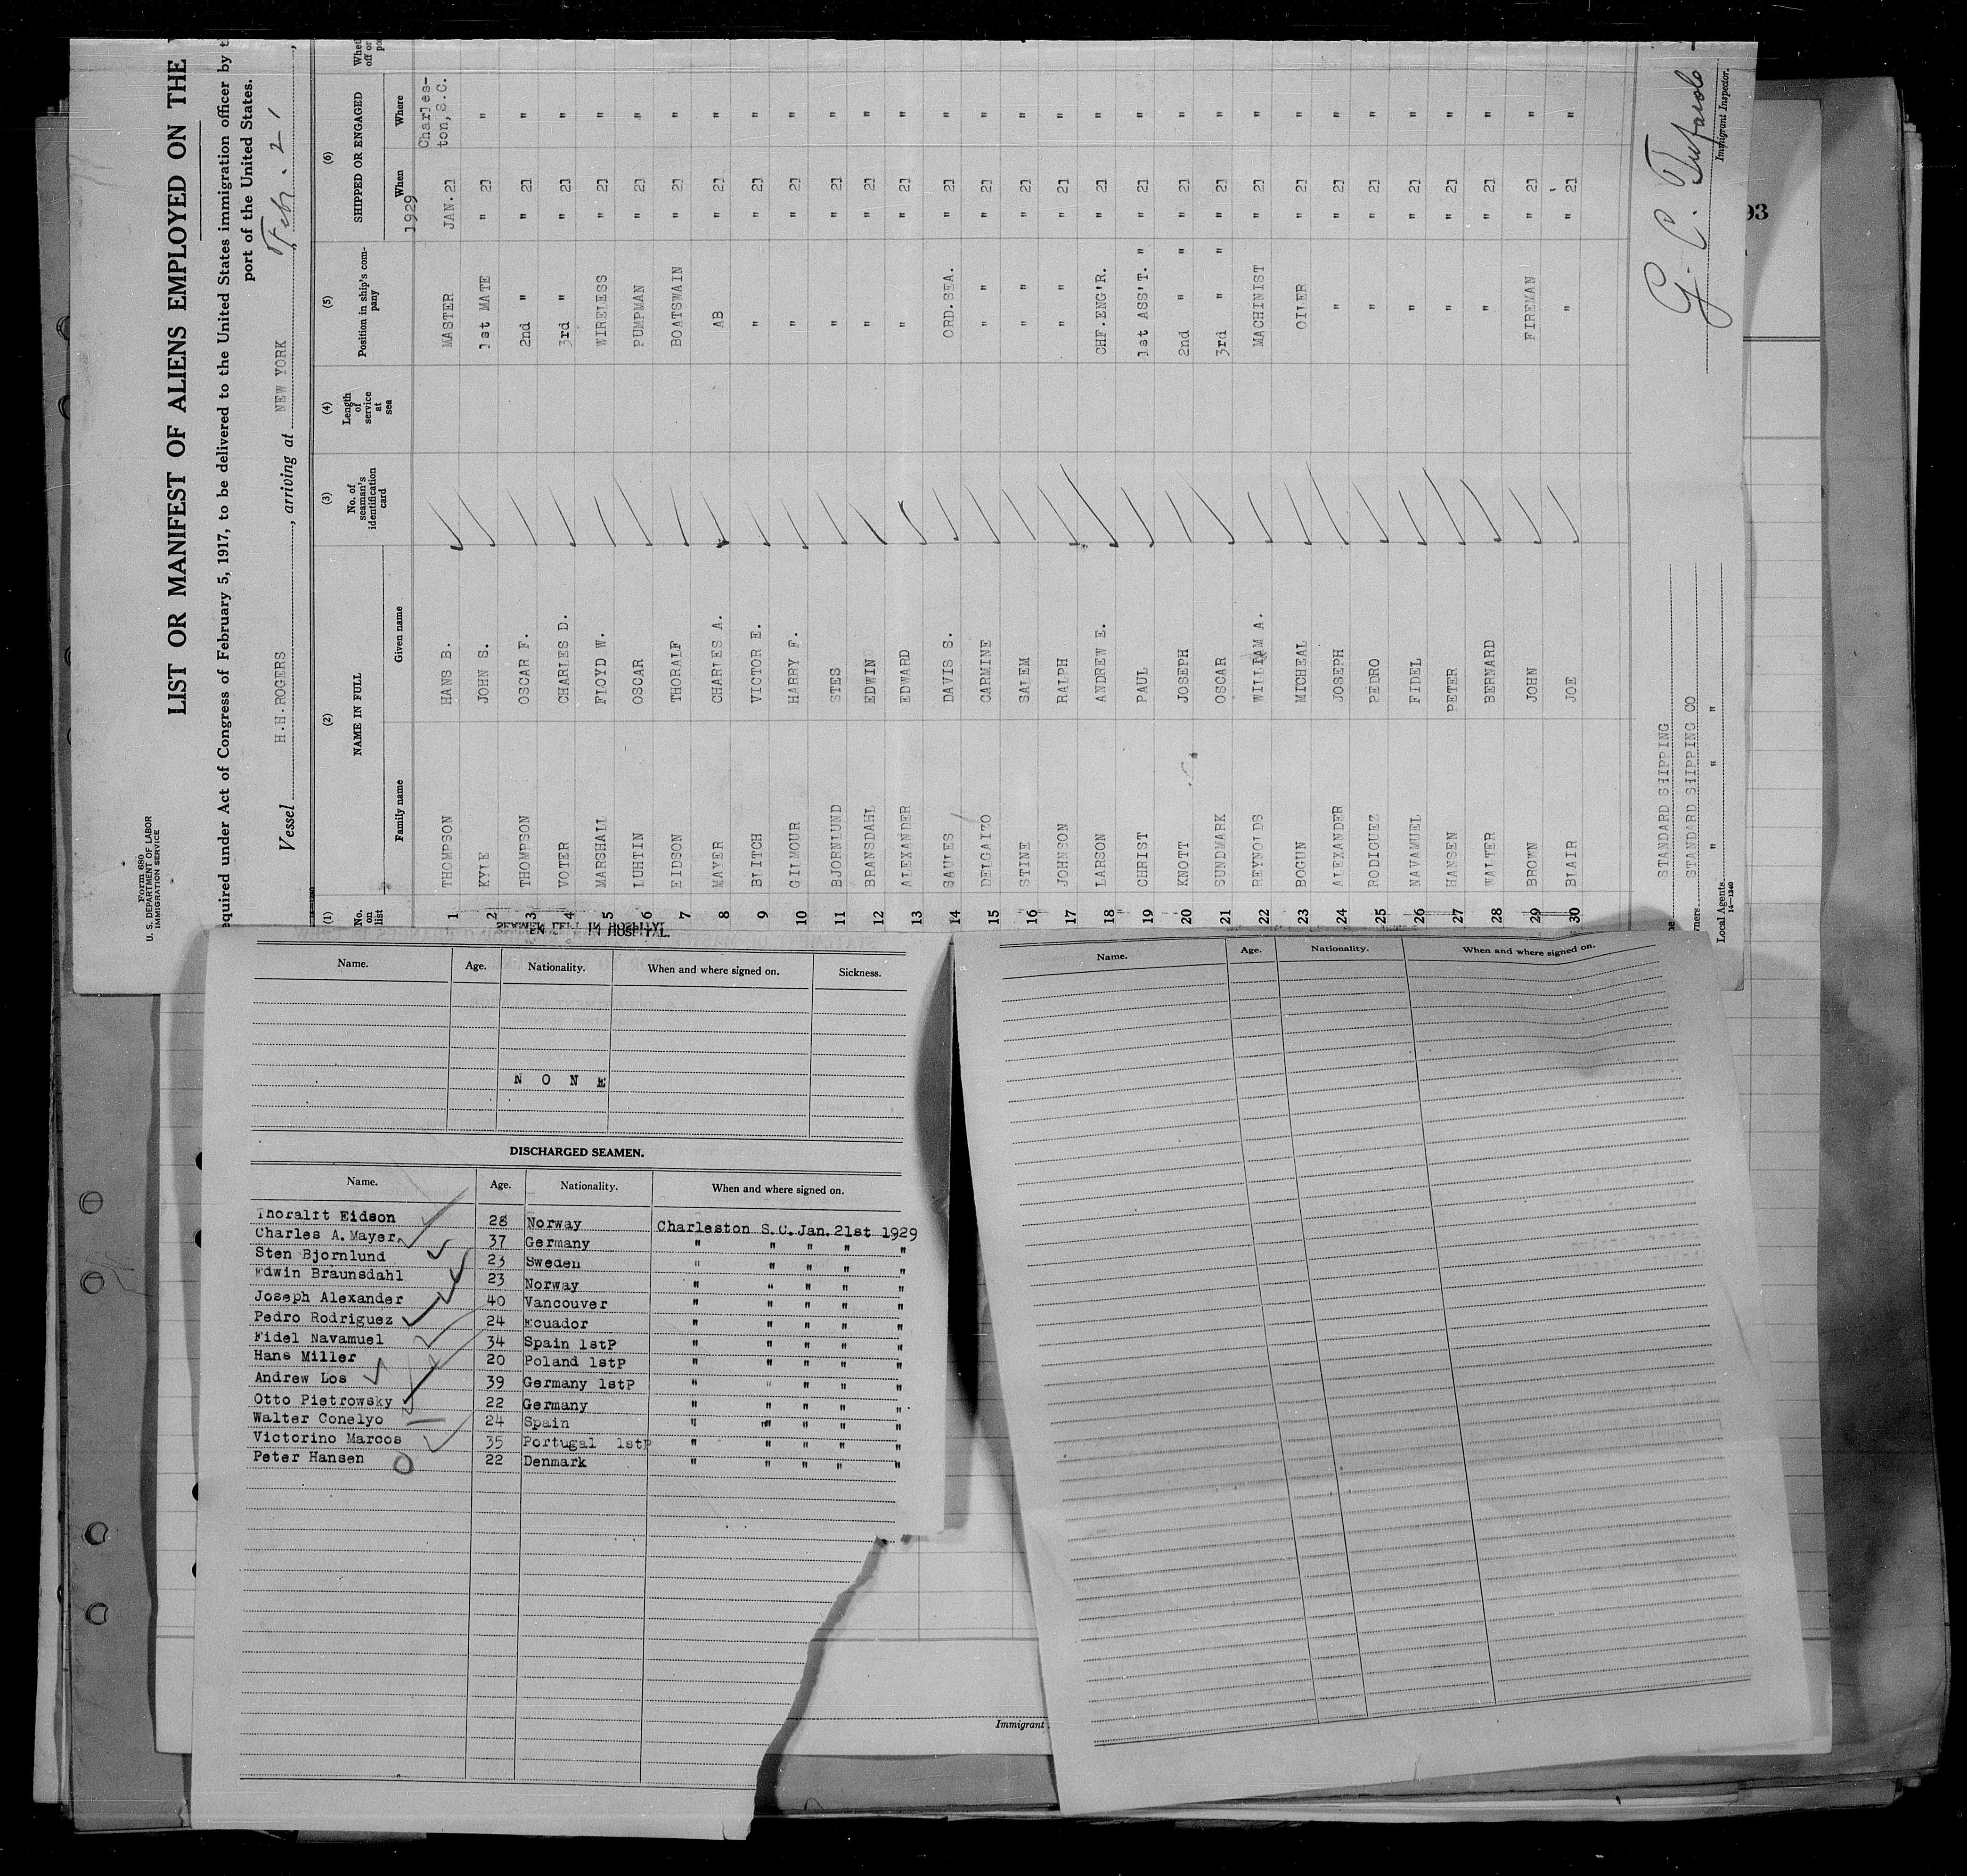 Form 680
U. S. DEPARTMENT OF LABOR
IMMIGRATION SERVICE
LIST OR MANIFEST OF ALIENS EMPLOYED ON THE
equired under Act of Congress of February 5, 1917, to be delivered to the United States immigration officer by t
port of the United States.
Vessel H.H.ROGERS, arriving at NEW YORK Feb. 21,
(1) (2) (3) (4) (5) (6)
No. on list NAME IN FULL No. of seaman's identification card Length of service at sea Position in ship's company SHIPPED OR ENGAGED Whet
off or
po
Family name Given name When Where
1929
1 THOMPSON HANS B. MASTER JAN. 21 Charleston, S.C.
2 KYLE JOHN S. 1st MATE " 21 "
3 THOMPSON OSCAR F. 2nd " " 21 "
4 VOTER CHARLES D. 3rd " " 21 "
5 MARSHALL FLOYD W. WIRELESS " 21 "
6 LUHTIN OSCAR PUMPMAN " 21 "
7 EIDSON THORALF BOATSWAIN " 21 "
8 MAYER CHARLES A. AB " 21 "
9 BLITCH VICTOR E. " " 21 "
10 GILMOUR HARRY F. " " 21 "
11 BJORNLUND STES " " 21 "
12 BRANSDAHL EDWIN " " 21 "
13 ALEXANDER EDWARD " " 21 "
14 SAULES DAVIS S. ORD.SEA. " 21 "
15 DELGAIZO CARMINE " " 21 "
16 STINE SALEM " " 21 "
17 JOHNSON RALPH " " 21 "
18 LARSON ANDREW E. CHF.ENG'R. " 21 "
19 CHRIST PAUL 1st ASS'T. " " 21 "
20 KNOTT JOSEPH 2nd " " " 21 "
21 SUNDMARK OSCAR 3rd " " " 21 "
22 REYNOLDS WILLIAM A. MACHINIST " 21 "
23 BOGUN MICHEAL OILER " 21 "
24 ALEXANDER JOSEPH " " 21 "
25 RODIGUEZ PEDRO " " 21 "
26 NAVAMUEL FIDEL " " 21 "
27 HANSEN PETER " " 21 "
28 WALTER BERNARD " " 21 "
29 BROWN JOHN FIREMAN " 21 "
30 BLAIR JOE " " 21 "
STANDARD SHIPPING
STANDARD SHIPPING CO
Local Agents " " "
14-1240
Immigrant Inspector.
93
SEAMEN LEFT IN HOSPITAL.
Name. Age. Nationality. When and where signed on. Sickness.
N O N E
DISCHARGED SEAMEN.
Name. Age. Nationality. When and where signed on.
Thoralft Eidson 28 Norway Charleston S.C.Jan.21st 1929
Charles A.Mayer 37 Germany " " " " "
Sten Bjornlund 23 Sweden " " " " "
Edwin Braunsdahl 23 Norway " " " " "
Joseph Alexander 40 Vancouver " " " " "
Pedro Rodriguez 24 Ecuador " " " " "
Fidel Navamuel 34 Spain 1stP " " " " "
Hans Miller 20 Poland 1stP " " " " "
Andrew Los 39 Germany 1stP " " " " "
Otto Pietrowsky 22 Germany " " " " "
Walter Conelyo 24 Spain " " " " "
Victorino Marcos 35 Portugal 1stP " " " " "
Peter Hansen 22 Denmark " " " " "
Name. Age. Nationality. When and where signed on.
Immigrant